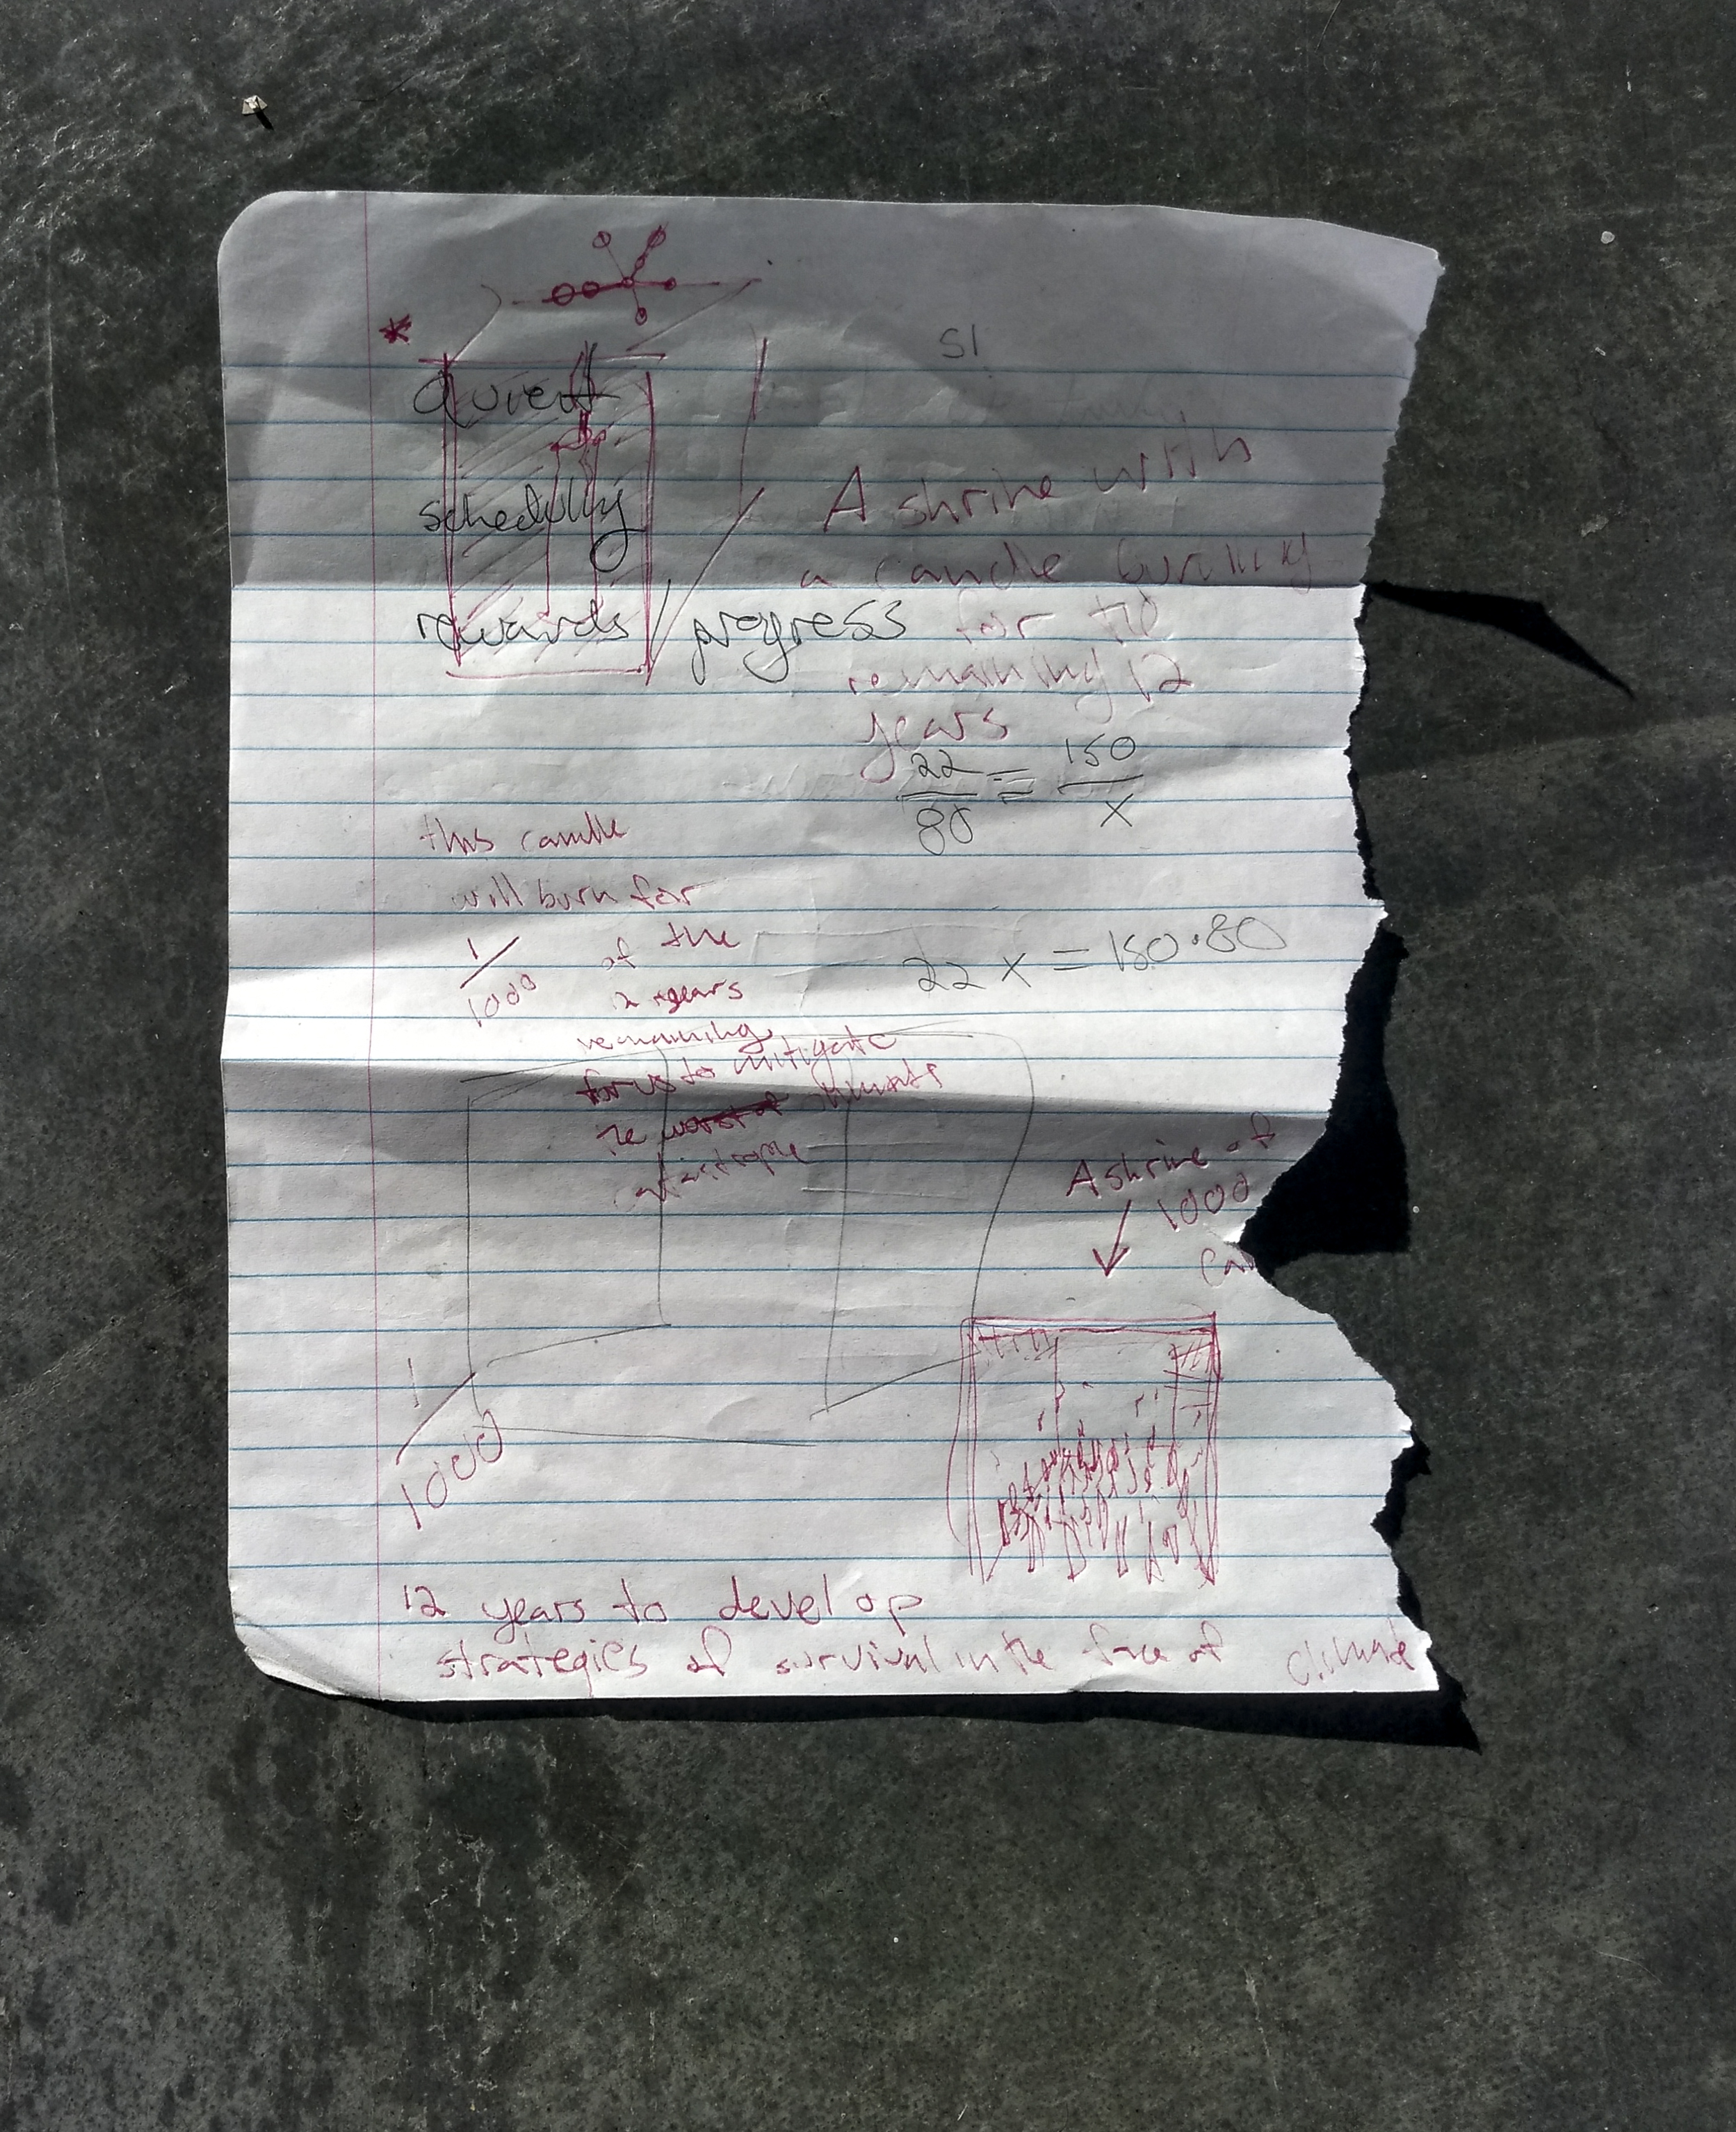 SI
Quiet
scheduling
rewards / progress
A shrine with
a candle burning
for the
remaining 12
years
22/80 = 150/x
22x = 150·80
this candle
will burn for
1/1000 of the
12 years
remaining
for us to mitigate
the worst of climate
catastrophe
A shrine of
1000
Can
1/1000
12 years to develop
strategies of survival in the face of climate